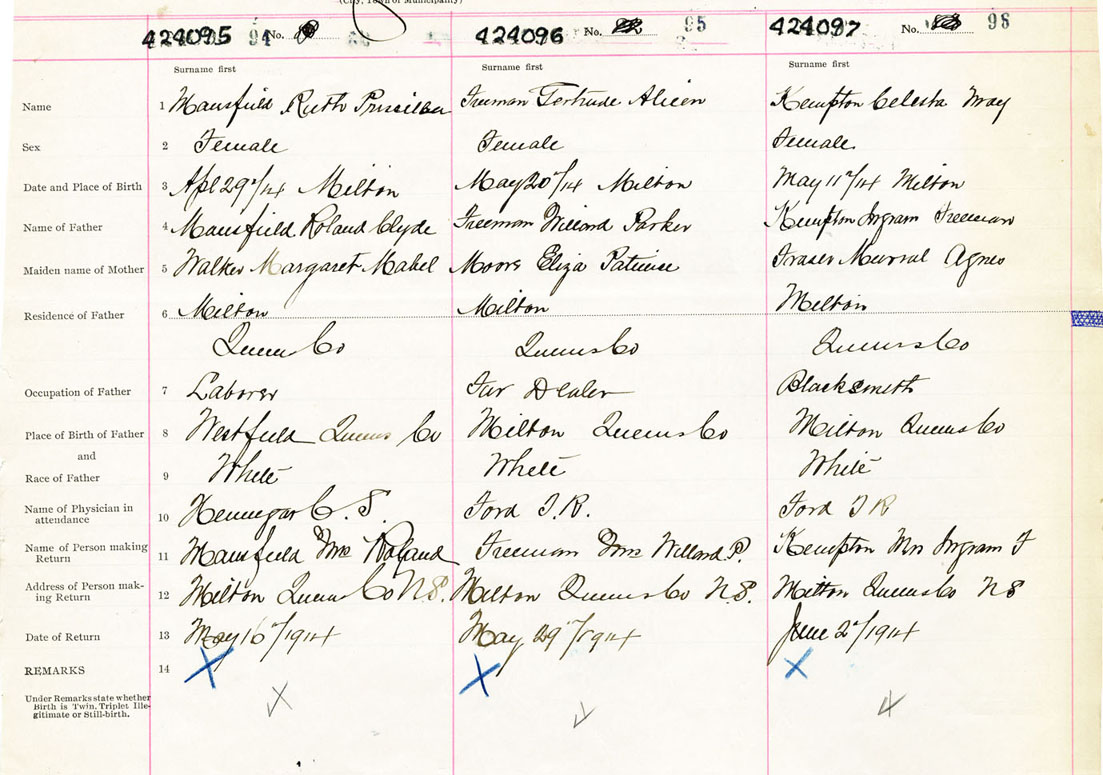 (City, Town or Municipality)
424095 94 No. 424096 No. 95 424097 No. 96
Surname first Surname first Surname first
Name 1 Mansfield Ruth Priscilla Freeman Gertrude Aileen Kempton Celesta May
Sex 2 Female Female Female
Date and Place of Birth 3 Apl 29"/14 Milton May 20"/14 Milton May 11"/14 Milton
Name of Father 4 Mansfield Roland Clyde Freeman Willard Parker Kempton Ingram Freeman
Maiden name of Mother 5 Walker Margaret Mabel Moore Eliza Patience Fraser Agnes
Residence of Father 6 Milton Milton Milton
Queens Co Queens Co Queens Co
Occupation of Father 7 Laborer Fur Dealer Blacksmith
Place of Birth of Father 8 Westfield Queens Co Milton Queens Co Milton Queens Co
and
Race of Father 9 White White White
Name of Physician in
attendance 10 Hennigar C. S. Ford T. R. Ford T R
Name of Person making
Return 11 Mansfield Mrs Roland Freeman Mrs Willard P. Kempton Mrs Ingram F
Address of Person mak-
ing Return 12 Milton Queens Co N.S. Milton Queens Co N.S. Milton Queens Co N S
Date of Return 13 May 16"/1914 May 29"/1914 June 2"/1914
REMARKS 14
Under Remarks state whether
Birth is Twin, Triplet Ille-
gitimate or Still-birth.